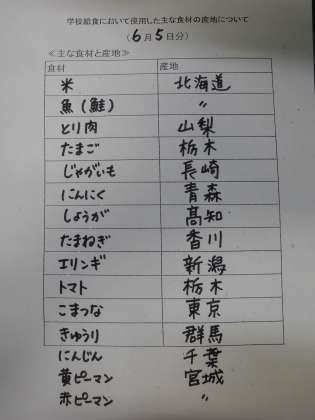 学校給食において使用した主な食材の産地について
(6月5日分)
≪主な食材と産地≫
食材 産地
米 北海道
魚(鮭) 〃
とり肉 山梨
たまご 栃木
じゃがいも 長崎
にんにく 青森
しょうが 高知
たまねぎ 香川
エリンギ 新潟
トマト 栃木
こまつな 東京
きゅうり 群馬
にんじん 千葉
黄ピーマン 宮城
赤ピーマン 〃